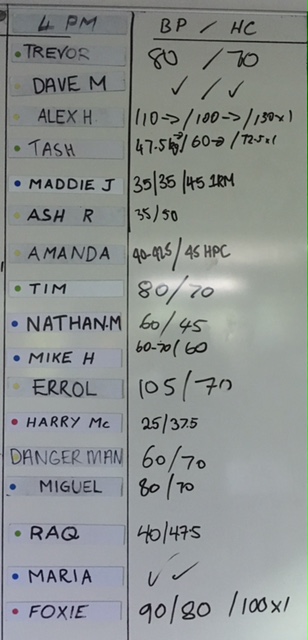 4 PM BP / HC
TREVOR 80 / 70
DAVE M ✓ / ✓
ALEX H 110-> / 100-> / 130x1
TASH 47.5kg-> / 60-> / 72.5x1
MADDIE J 35/35/45 1RM
ASH R 35/50
AMANDA 40-42.5/45 HPC
TIM 80/70
NATHAN.M 60/45
MIKE H 60-70/60
ERROL 105/70
HARRY Mc 25/37.5
DANGERMAN 60/70
MIGUEL 80/70
RAQ 40/47.5
MARIA ✓ ✓
FOXIE 90/80 /100x1